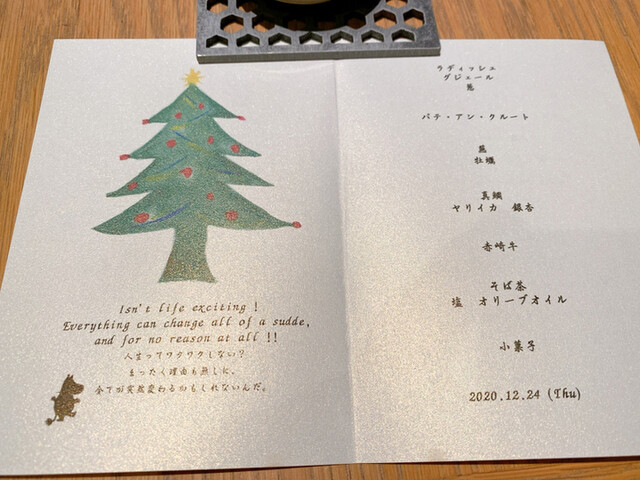 Isn't life exciting !
Everything can change all of a sudde,
and for no reason at all !!
人生ってワクワクしない?
まったく理由も無しに、
全てが突然変わるかもしれないんだ。
ラディッシュ
ダジェール
葱
パテ・アン・クルート
蕪
牡蠣
真鯛
ヤリイカ 銀杏
赤崎牛
そば茶
塩 オリーブオイル
小菓子
2020.12.24 (Thu)